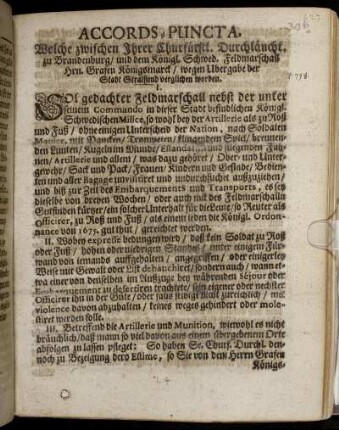 ACCORDS-PUNCTA,
Welche zwischen Ihrer Churfürstl. Durchläucht.
zu Brandenburg/ und dem Königl. Schwed. Feldmarschall
Hrn. Grafen Königsmarck/ wegen Ubergabe der
Stadt Stralsund verglichen worden.
I.
SOl gedachter Feldmarschall nebst der unter
seinem Commando in dieser Stadt befindlichen Königl.
Schwedischen Milice, so wohl bey der Artillerie als zu Roß
und Fuß/ ohne einigen Unterscheid der Nation, nach Soldaten
Manier, mit Paucken/ Trompeten/ klingendem Spiel/ brennen-
den Lunten/ Kugeln im Munde/ und fliegenden Fah-
nen/ Artillerie und allem/ was dazu gehöret/ Ober- und Unter-
gewehr/ Sack und Pack/ Frauen/ Kindern und Gesinde/ Bedien-
ten und aller Bagage unvisitiret und undurchsuchet auszuziehen/
und biß zur Zeit des Embarquements und Transports, es sey
dieselbe von dreyen Wochen/ oder auch mit des Feldmarschalln
Gutfinden kürtzer/ ein solcher Unterhalt für die Leute/ so Reuter als
Officirer, zu Roß und Fuß/ als einem jeden die Königl. Ordon-
nance von 1675. gut thut/ gereichet werden.
II. Wobey expresse bedungen wird/ daß kein Soldat zu Roß
oder Fuß/ hohen oder niedrigen Standes/ unter einigem Für-
wand von jemands auffgehalten/ angegriffen/ oder einigerley
Weise mit Gewalt oder List debauchiret/ sondern auch/ wann et-
wa einer von denselben im Auszuge bey währenden sejour oder
Embarquement zu deseriren trachtete/ sein eigener oder nechster
Officirer ihn in der Güte/ oder zureichlich/ mit
violence davon abzuhalten/ keines weges gehindert oder mole-
stiret werden solle.
III. Betreffend die Artillerie und Munition, wiewohl es nicht
bräuchlich/ daß mann so viel davon aus einem übergebenem Orte
abfolgen zu lassen pfleget: So haben Se. Churf. Durchl. den-
noch zu Bezeigung dero Estime, so Sie von dem Herrn Grafen
Königs-